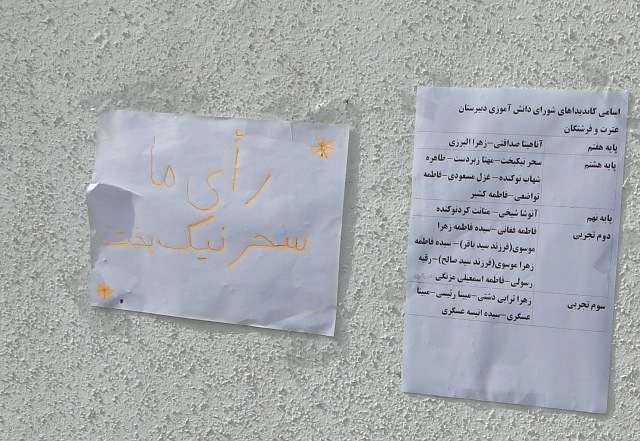 رأی ما
سحر نیک بخت
اسامی کاندیداهای شورای دانش آموزی دبیرستان
عترت و فرشتگان
پایه هفتم آناهیتا صداقتی-زهرا البرزی
پایه هشتم سحر نیکبخت-مهتا زبردست- طاهره
شهاب نوکنده- غزل مسعودی-فاطمه
تواضعی-فاطمه کشیر
پایه نهم آنوشا شیخی- متانت کردنوکنده
دوم تجربی فاطمه فغانی-سیده فاطمه زهرا
موسوی(فرزند سید باقر)- سیده فاطمه
زهرا موسوی(فرزند سید صالح)-رقیه
رسولی-فاطمه اسمعیلی مزنگی
سوم تجربی زهرا ترابی دشتی-مبینا رئیسی-مبینا
عسگری-سیده انیسه عسگری